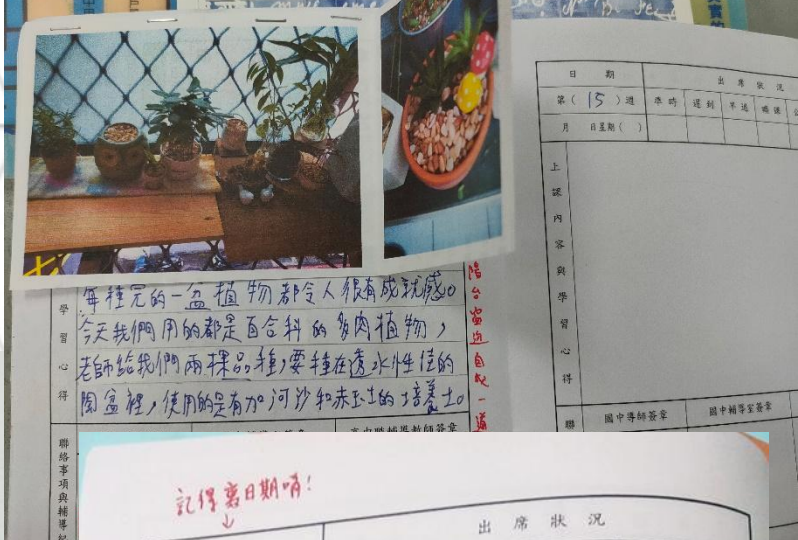 學習心得
每種完的一盆植物都令人很有成就感。
今天我們用的都是百合科的多肉植物,
老師給我們兩棵品種,要種在透水性佳的
陶盆裡,使用的是有加河沙和赤玉土的培養土。
陽台窗邊自成一道
聯絡事項與輔導紀
日期
出席狀況
第(15)週
準時
遲到
早退
曠課
月 日星期( )
上課內容與學習心得
國中導師簽章
國中輔導室簽章
聯
記得寫日期唷!
出席狀況